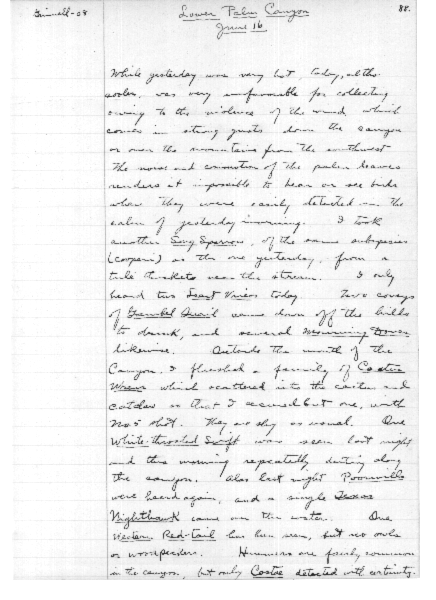 Grinnell-08
Lower Palm Canyon
88.
June 16
While yesterday was very hot, today, altho
cooler, was very unfavorable for collecting
owing to the violence of the wind, which
comes in strong gusts down the canyon
or over the mountains from the southwest.
The noise and commotion of the palm leaves
renders it impossible to hear or see birds
where they were easily detected in the
calm of yesterday morning. I took
another Song Sparrow, of the same subspecies
(cooperi) as the one yesterday, from a
tule thicket near the stream. I only
heard two Least Vireos today. Two coveys
of Gambel Quail came down off the hills
to drink, and several Mourning Doves
likewise. Outside the mouth of the
Canyon I flushed a family of Cactus
Wrens which scattered into the cactus and
catclaw so that I secured but one, with
No 5 shot. They are shy as usual. One
White-throated Swift was seen last night
and this morning repeatedly, darting along
the canyon. Also last night Poorwills
were heard again, and a single Texas
Nighthawk came over the water. One
Western Red-tail has been seen, but no owls
or woodpeckers. Hummers are fairly common
in the canyon, but only Costae detected with certainty.